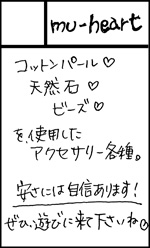 mu-heart
コットンパール♡
天然石♡
ビーズ♡
を使用した
アクセサリー各種。
安さには自信あります!
ぜひ、遊びに来て下さいね☺